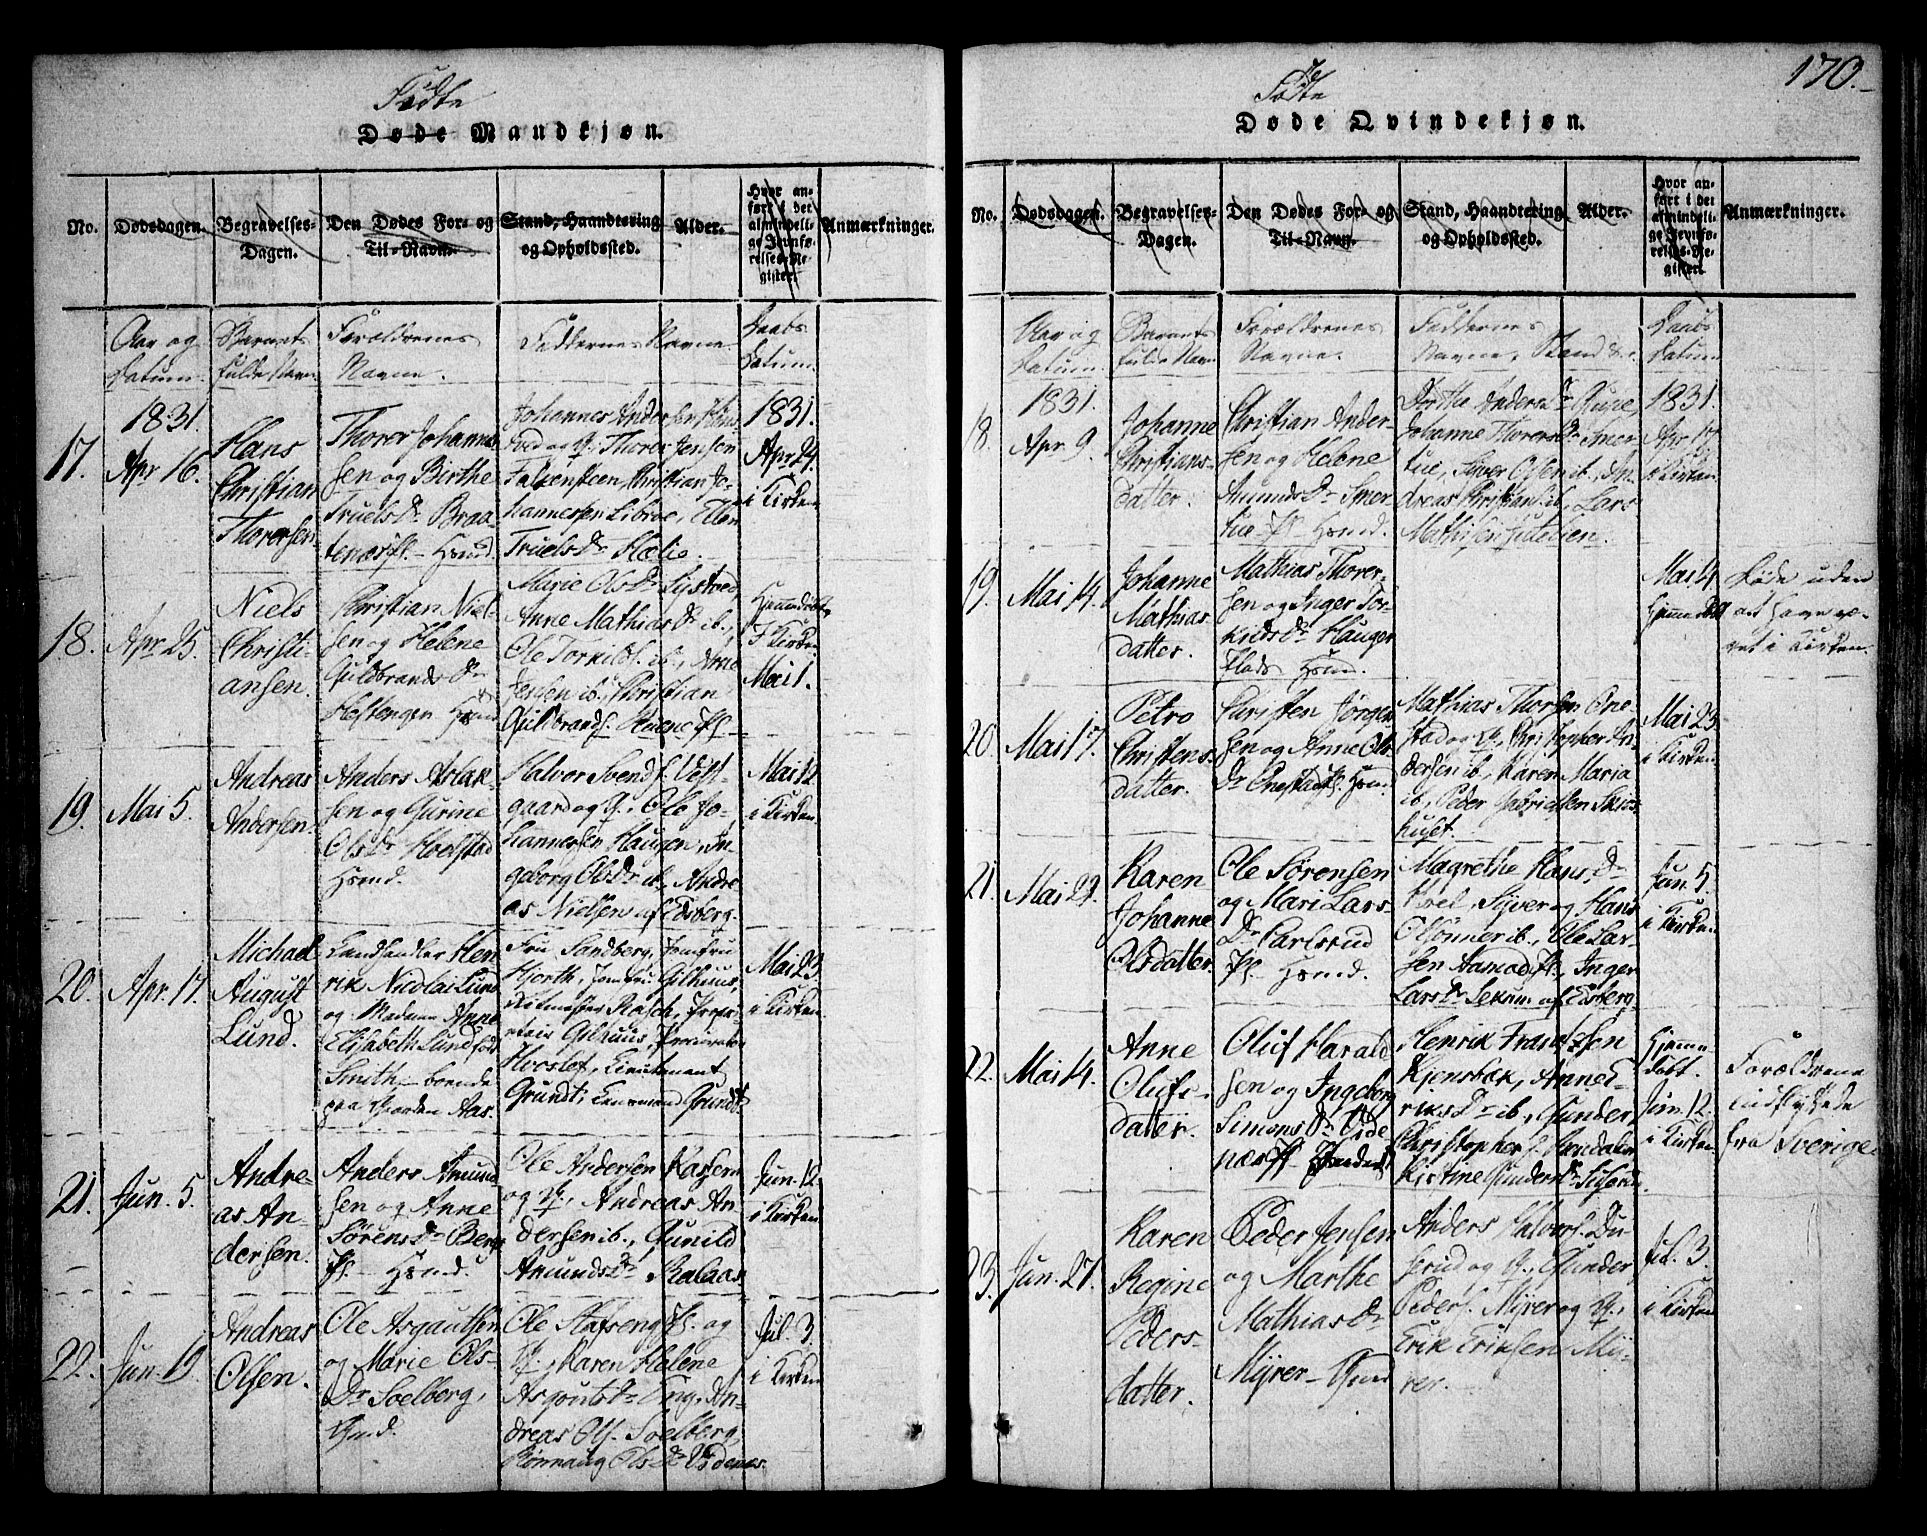 170.
Födte
Døde Mandkjøn.
No.
Dødsdagen.
Begravelses-
Dagen.
Den Dødes For- og
Til-Navn.
Stand, Haandtering
og Opholdssted.
Alder.
Hvor an-
ført i det
almindeli-
ge Jevnfø-
relses-Re-
gister.
Anmærkninger.
Aar og
Datum.
Barnets
fulde Navn
Forældrenes
Navne.
Faddernes Navne.
Daabs
Datum.
17.
1831.
Apr. 16.
Hans
Christian
Thorersen
Thorer Johannes-
sen og Birthe
Truels Dr. Braa-
tenør Pl. Hsmd.
Johannes Andersen
og Q., Thorer Jensen
Falkensteen, Christian Jo-
hannessen Libroe, Ellen
Truels Dr. Hælie.
1831.
Apr. 24.
i Kirken
18.
Apr. 25.
Niels
Christi-
ansen.
Christian Niel-
sen og Helene
Guldbrands Dr.
Hestengen Hsmd
Marie Ols Dr.
Anne Mathias Dr. ib.,
Ole Torkilds. ib., Arne
Jensen ib., Christian
Guldbrands. Ruene Pl.
Hjemmedøbt
I Kirken
Mai 1.
19.
Mai 5.
Andreas
Andersen.
Anders Aslak-
sen og Gurine
Ols Dr. Hoelstad
Hsmd.
Halvor Svends. Vest-
gaard og Q., Ole Jo-
hannessen Haugen, In-
geborg Ols Dr. ib., Andre-
as Nielsen af Edsberg.
Mai 12
i Kirken.
20.
Apr. 17.
Michael
August
Lund.
Landhandler Hen-
rik Nicolai Lund
og Madame Anne
Elisabeth Lund født
Smith, boende
paa Gaarden Aas.
Fru Sandberg, Jomfru
Hjorth, Jomfru Gilhuus,
Ritmester Rasch, Propri-
etair Gilhuus, Procurator
Hvoslef, Lieutenant
Grundt, Lensmand Grundt
Mai 23.
i Kirken.
21.
Jun. 5.
Andre-
as An-
dersen.
Anders Amund-
sen og Anne
Sørens Dr. Berg
Pl. Hsmd.
Ole Andersen
og Q., Andreas An-
dersen ib., Gunild
Amunds Dr. Kalaas
Jun. 12.
i Kirken
22.
Jun. 19.
Andreas
Olsen.
Ole Asgautsen
og Marie Ols-
Dr. Soelberg,
Gmd.
Ole Stafseng Pl. og
Q., Karen Helene
Asgouts Dr. Eng, An-
dreas Ols. Soelberg,
Rønnaug Ols Dr.
Jul. 3.
i Kirken
Fødte
Døde Qvindekjøn.
No.
Dødsdagen.
Begravelses-
Dagen.
Den Dødes For- og
Til-Navn.
Stand, Haandtering
og Opholdssted.
Alder.
Hvor an-
ført i det
almindeli-
ge Jevnfø-
relses-Re-
gister.
Anmærkninger.
Aar og
Datum.
Barnets
fulde Navn
Forældrenes
Navne.
Faddernes
Navne, Stand &c.
Daabs
Datum
18.
1831.
Apr. 9.
Johanne
Christians-
datter.
Christian Ander-
sen og Helene
Amunds Dr. Smer-
tue Pl. Hsmd.
Dorthe Anders Dr.
Johanne Thorers Dr. Smer-
tue, Siver Olsen ib., An-
dreas Christians. ib., Lars
Mathisen
1831.
Apr. 17
i Kirken
19.
Mai 14.
Johanne
Mathias
datter.
Mathias Thorer-
sen og Inger Tor-
kilds Dr. Hauger
Plads Hsmd.
Mai 14
Hjemmedøbt
Døde uden
at have væ-
ret i Kirken.
20.
Mai 17.
Petro
Christens-
datter.
Christen Jørgen-
sen og Anne Ols
Dr. Onestad Pl. Hsmd.
Mathias Thorsen One-
stad og Q., Christopher An-
dersen ib., Karen Maria
ib., Peder Gabrielsen Skio-
huset.
Mai 23
i Kirken
21.
Mai 29.
Karen
Johanne
Olsdatter.
Ole Sørensen
og Mari Lars-
Dr. Carlsrud
Pl. Hsmd.
Magrethe Hans Dr.
Siver og Hans
Olsønner ib., Ole Lar-
sen Aamod Pl., Inger
Lars Dr. Sekum af Edsberg
Jun. 5.
i Kirken
22.
Mai 14.
Anne
Olufs-
datter.
Oluf Harald
sen og Ingeborg
Simons Dr. Vide
næs Pl.
Henrik Frantzsen
Kjensbæk, Anne E-
riks Dr. ib., Gunder
Christophers.
Kistine Gunders Dr.
Hjemme
døbt.
Jun. 12.
i Kirken
Forældrene
indflyttede
fra Sverige.
23.
Jun. 27.
Karen
Regine
Peders-
datter.
Peder Jensen
og Marthe
Mathias Dr.
Myrer Gmd
Anders Halvors. Du-
serud og Q., Gunder
Peders. Myrer og Q.,
Erik Eriksen My-
rer.
Jul. 3.
i Kirken